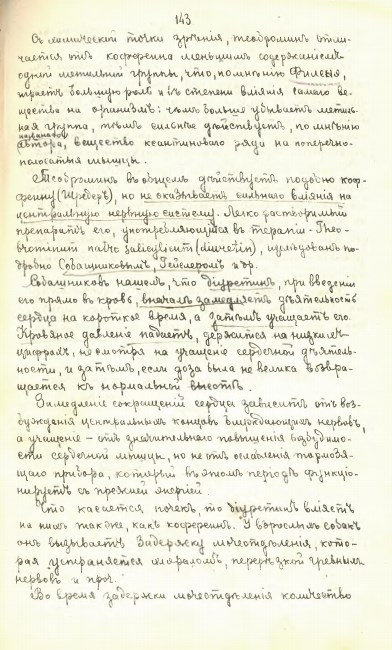 143
Съ химической точки зрѣнія, теоброминъ отли-
чается отъ коффеина меньшимъ содержаніемъ
одной метильной группы, что, по мнѣнію Филеня,
играетъ большую роль и въ степени вліянія самаго ве-
щества на организмъ: чѣмъ больше убываетъ метиль-
ная группа, тѣмъ сильнѣе дѣйствуетъ, по мнѣнію
названнаго
автора, вещество ксантиноваго ряда на поперечно-
полосатыя мышцы.
Теоброминъ въ общемъ дѣйствуетъ подобно коф-
феину (Шредеръ), но не оказываетъ сильнаго вліянія на
центральную нервную систему. Легко растворимый
препаратъ его, употребляющійся въ терапіи - Theo-
brominum natro salicylicum (diuretin), изслѣдованъ по-
дробно Собашниковымъ, Гейслеромъ и др.
Собашниковъ нашелъ, что діуретинъ, при введеніи
его прямо въ кровь, вначалѣ замедляетъ дѣятельность
сердца на короткое время, а затѣмъ учащаетъ его.
Кровяное давленіе падаетъ, держится на низкихъ
цифрахъ, несмотря на учащеніе сердечной дѣятель-
ности, и затѣмъ, если доза была не велика возвра-
щается къ нормальной высотѣ.
Замедленіе сокращеній сердца зависитъ отъ воз-
бужденія центральныхъ концовъ блуждающихъ нервовъ,
а учащеніе - отъ значительнаго повышенія возбудимо-
сти сердечной мышцы, но не отъ ослабленія тормозя-
щаго прибора, который въ этомъ періодѣ функціо-
нируетъ съ прежней энергіей.
Что касается почекъ, то діуретинъ вліяетъ
на нихъ такъ же, какъ коффеинъ. У взрослыхъ собакъ
онъ вызываетъ задержку мочеотдѣленія, кото-
рая устраняется хлораломъ, перерѣзкой чревныхъ
нервовъ и проч.
Во время задержки мочеотдѣленія количество